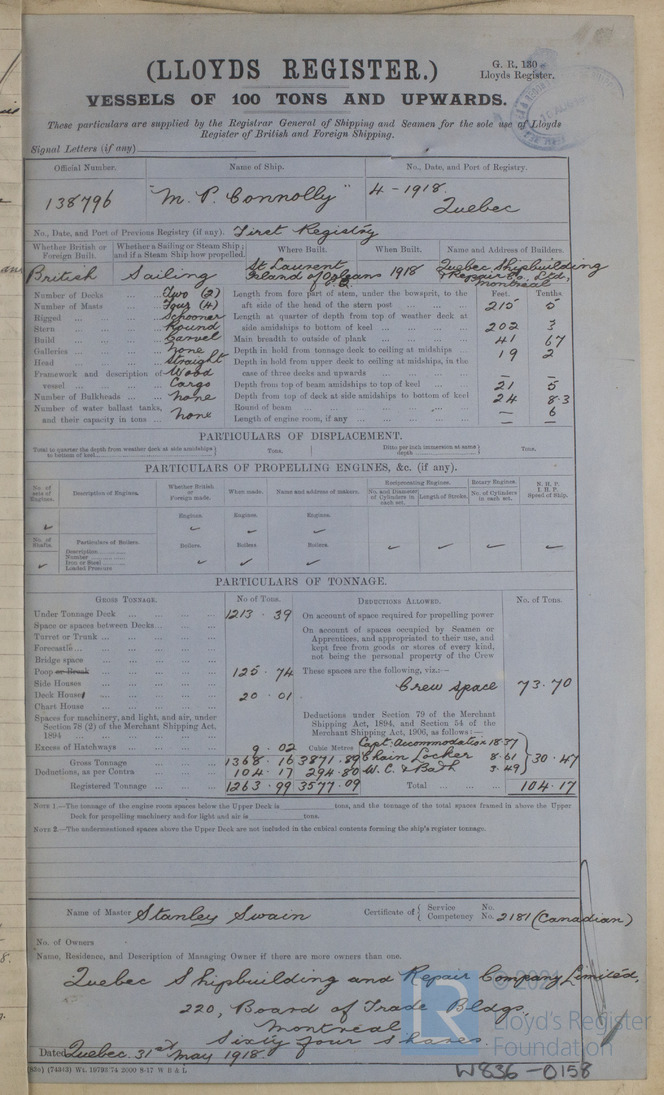 (LLOYDS REGISTER.)
G. R. 130
Lloyds Register.
VESSELS OF 100 TONS AND UPWARDS.
These particulars are supplied by the Registrar General of Shipping and Seamen for the sole use of Lloyds
Register of British and Foreign Shipping.
Signal Letters (if any)
Official Number. Name of Ship. No., Date, and Port of Registry.
138796 "M. P. Connolly" 4 - 1918. Quebec
No., Date, and Port of Previous Registry (if any). First Registry
Whether British or Foreign Built. Whether a Sailing or Steam Ship; and if a Steam Ship how propelled. Where Built. When Built. Name and Address of Builders.
British Sailing St Laurent Island of Orleans P.Q. 1918 Quebec Shipbuilding & Repair Co. Ltd, Montreal
Number of Decks Two (2) Length from fore part of stem, under the bowsprit, to the Feet. Tenths
Number of Masts Four (4) aft side of the head of the stern post 215 5
Rigged Schooner Length at quarter of depth from top of weather deck at
Stern Round side amidships to bottom of keel 202 3
Build Carvel Main breadth to outside of plank 41 67
Galleries None Depth in hold from tonnage deck to ceiling at midships 19 2
Head Straight Depth in hold from upper deck to ceiling at midships, in the
Framework and description of Wood case of three decks and upwards — —
vessel Cargo Depth from top of beam amidships to top of keel 21 5
Number of Bulkheads None Depth from top of deck at side amidships to bottom of keel 24 83
Number of water ballast tanks, Round of beam — 6
and their capacity in tons None Length of engine room, if any — —
PARTICULARS OF DISPLACEMENT.
Total to quarter the depth from weather deck at side amidships to bottom of keel Tons. Ditto per inch immersion at same depth Tons.
PARTICULARS OF PROPELLING ENGINES, &c. (if any).
No. of sets of Engines. Description of Engines. Whether British or Foreign made. When made. Name and address of makers. Reciprocating Engines. Rotary Engines. N. H. P. I. H. P. Speed of Ship.
No. and Diameter of Cylinders in each set. Length of Stroke. No. of Cylinders in each set.
Engines. Engines. Engines.
No. of Shafts. Particulars of Boilers. Boilers. Boilers. Boilers.
Description
Number
Iron or Steel
Loaded Pressure
PARTICULARS OF TONNAGE.
GROSS TONNAGE. No of Tons. DEDUCTIONS ALLOWED. No. of Tons.
Under Tonnage Deck 1213 . 39 On account of space required for propelling power
Space or spaces between Decks On account of spaces occupied by Seamen or
Turret or Trunk Apprentices, and appropriated to their use, and
Forecastle kept free from goods or stores of every kind,
Bridge space not being the personal property of the Crew
Poop or Break 125 . 74 These spaces are the following, viz.:—
Side Houses Crew space 73.70
Deck House 20 . 01
Chart House
Spaces for machinery, and light, and air, under Deductions under Section 79 of the Merchant
Section 78 (2) of the Merchant Shipping Act, Shipping Act, 1894, and Section 54 of the
1894 Merchant Shipping Act, 1906, as follows:—
Excess of Hatchways 9 . 02 Cubic Metres Capt. Accommodation 18.37
Gross Tonnage 1368 . 16 3871.89 Chain Locker 8.61 30.47
Deductions, as per Contra 104 . 17 294.80 W. C. & Bath 3.49
Registered Tonnage 1263 . 99 3577.09 Total 104.17
NOTE 1.—The tonnage of the engine room spaces below the Upper Deck is tons, and the tonnage of the total spaces framed in above the Upper
Deck for propelling machinery and for light and air is tons.
NOTE 2.—The undermentioned spaces above the Upper Deck are not included in the cubical contents forming the ship's register tonnage.
Name of Master Stanley Swain Certificate of Service No.
Competency No. 2181 (Canadian)
No. of Owners
Name, Residence, and Description of Managing Owner if there are more owners than one.
Quebec Shipbuilding and Repair Company, Limited,
220, Board of Trade Bldgs,
Montreal
Sixty four Shares.
Dated Quebec. 31st May 1918.
(74343) Wt. 19793/74 2000 8-17 W B & L
© 2021
LR
Lloyd's Register
Foundation
W836-0158